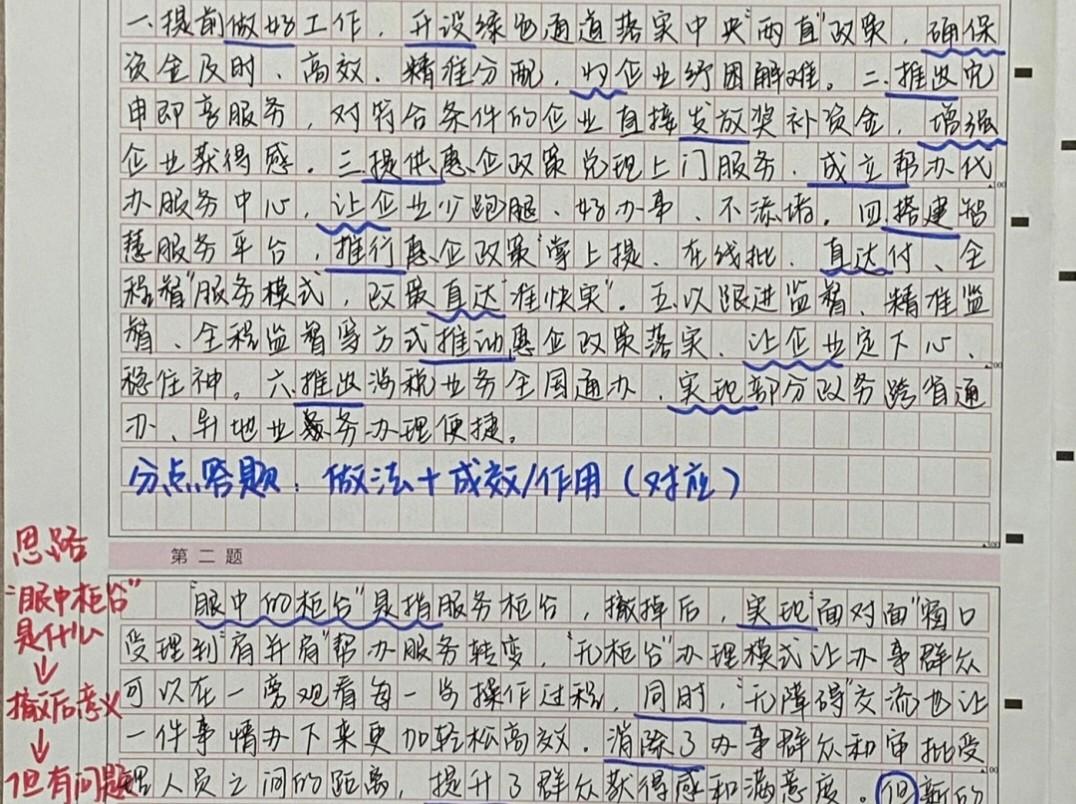 一、提前做好工作，开设绿色通道落实中央"两直"政策，确保
资金及时、高效、精准分配，以企业纾困解难。二、推出免
申即享服务，对符合条件的企业直接发放奖补资金，增强
企业获得感。三、提供惠企政策兑现上门服务，成立帮办代
办服务中心，让企业少跑腿、好办事、不添堵。四、搭建智
慧服务平台，推行惠企政策"掌上提、在线批、直达付、全
程督"服务模式，政策直达"准快实"。五、以跟进监督、精准监
督、全程监督等方式推动惠企政策落实、让企业定下心、
稳住神。六、推出消税业务全国通办，实现部分政务跨省通
办、异地业务办理便捷。
分点答题：做法+成效/作用（对应）
第二题
思路
"眼中柜台"
是什么
↓
撤后意义
↓
但有问题
"眼中的柜台"是指服务柜台，撤掉后，实现"面对面"窗口
受理到"肩并肩"帮办服务转变，"无柜台"办理模式让办事群众
可以在一旁观看每一步操作过程，同时，"无障碍"交流也让
一件事情办下来更加轻松高效。消除了办事群众和审批受
理人员之间的距离，提升了群众获得感和满意度。但新的